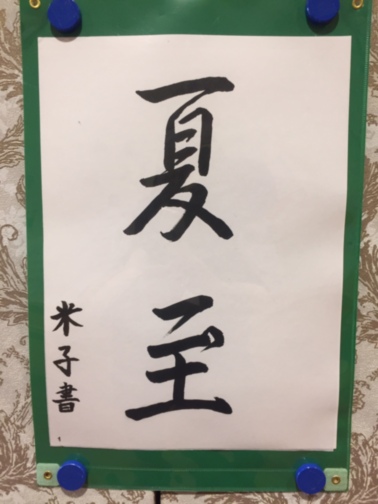 夏至
米子書